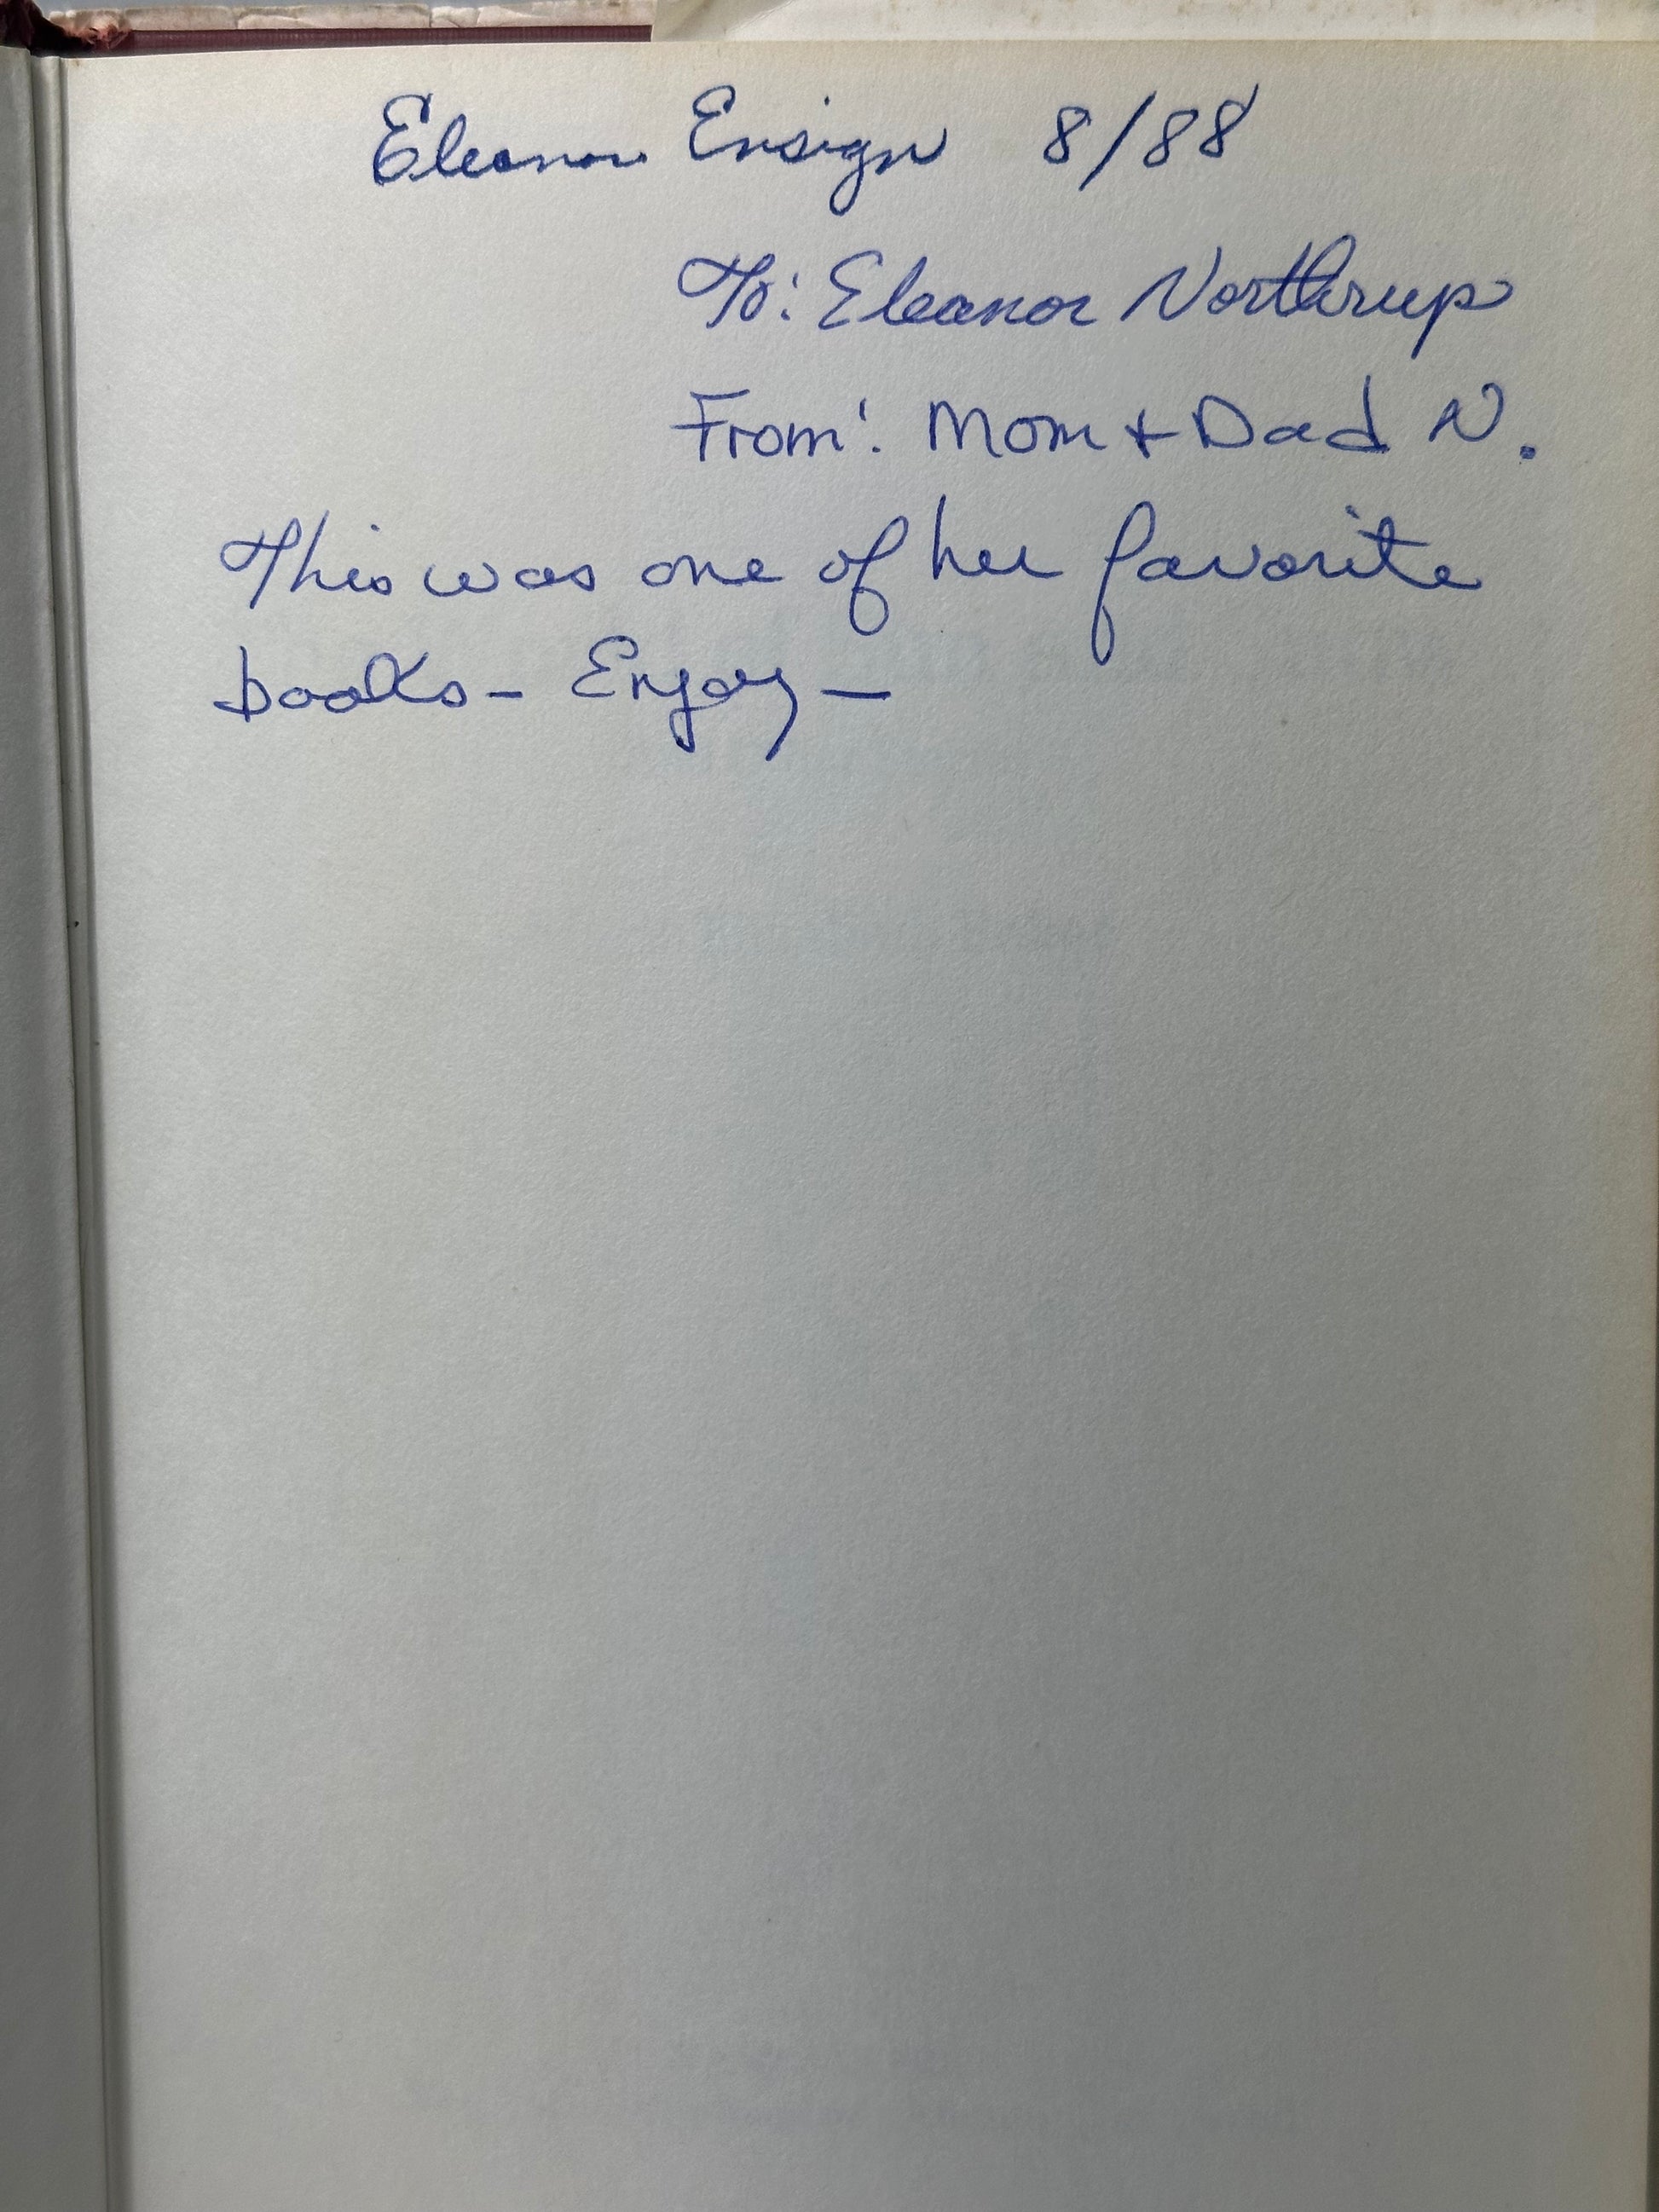 Eleanor Ensign 8/88
To: Eleanor Northrup
From: Mom + Dad N.
This was one of her favorite
books – Enjoy –